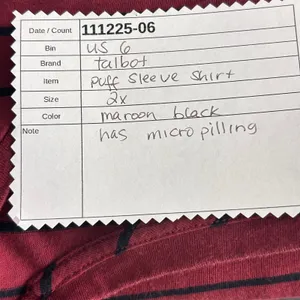 Date / Count 111225-06
Bin US 6
Brand talbot
Item puff sleeve shirt
Size 2x
Color maroon black
Note has micro pilling